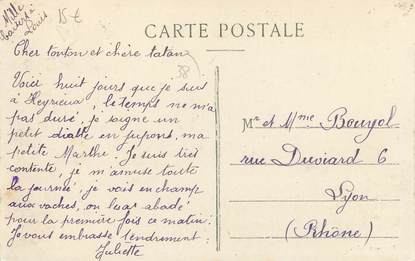 Mille
baisers à
Louis
15€
CARTE POSTALE
38
Cher tonton et chère tatan
Voici huit jours que je suis
à Heyrieux, le temps ne m'a
pas duré, je soigne un
petit diable en jupons, ma
petite Marthe. Je suis très
contente, je m'amuse toute
la journée, je vais en champ
aux vaches, on les a
pour la première fois ce matin.
Je vous embrasse tendrement:
Juliette
Mr et Mme Bouyol
rue Duviard 6
Lyon
(Rhône)